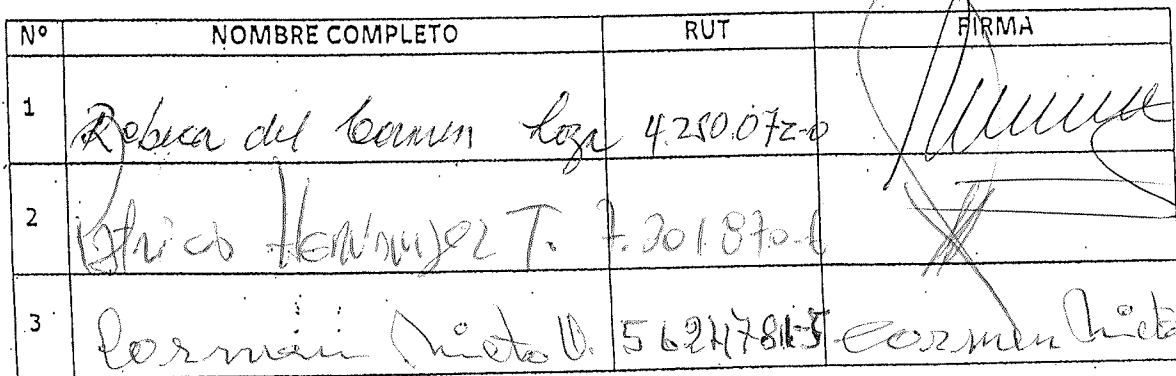 Nº NOMBRE COMPLETO RUT FIRMA
1 Rebeca del Carmen Loza 4.250.072-0
2 Patricio Hernández T. 7.201.870-
3 Carmen Nieto V. Carmen Nieto